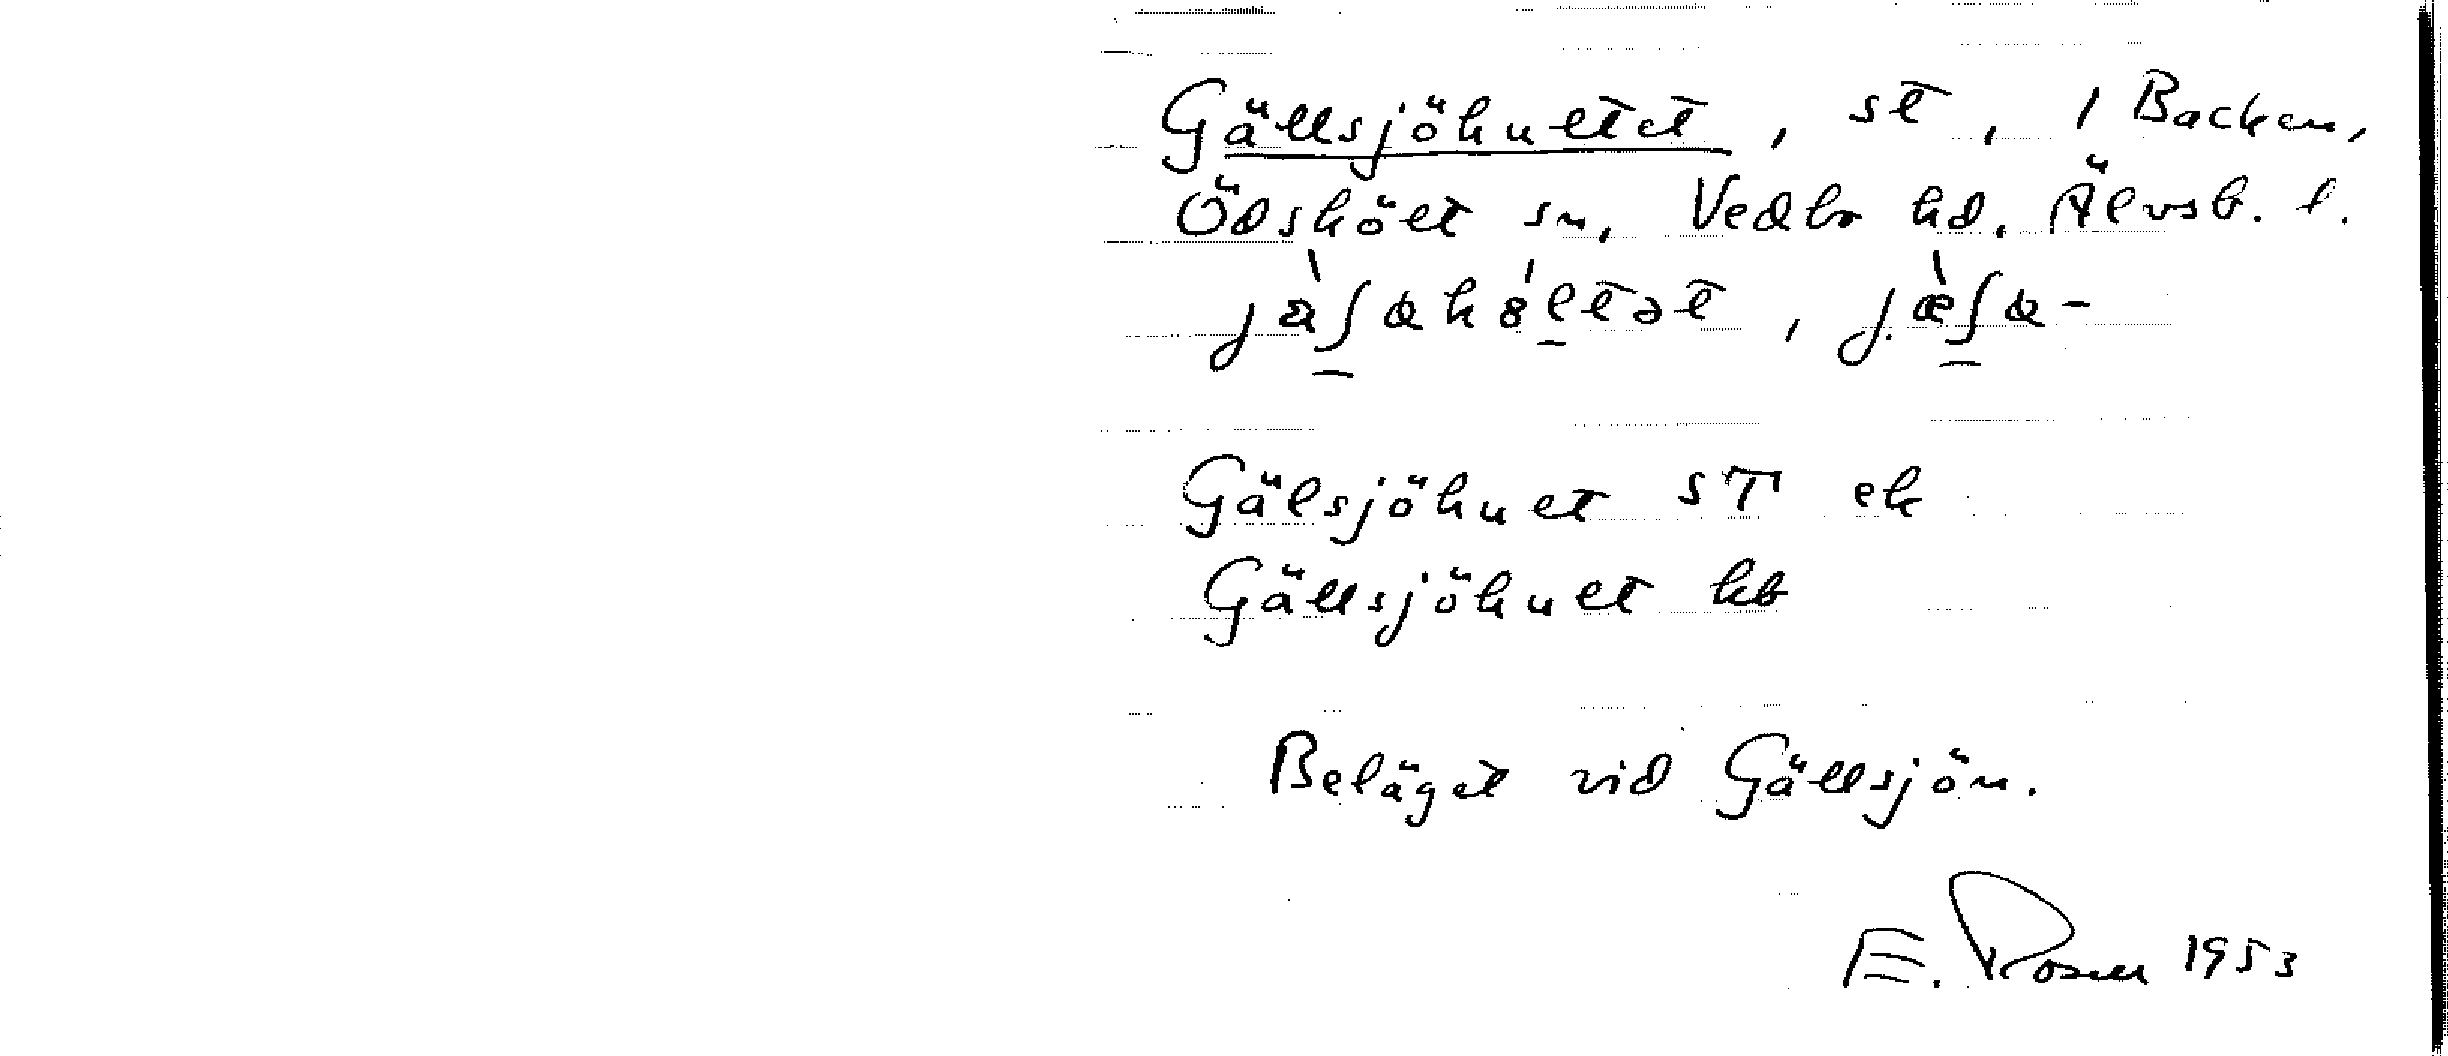 Gällsjöhultet, st, 1 Backen,
Ödskölt sn, Vedbo hd, Älvsb. l.
Gälsjöhult ST ek
Gällsjöhult kb
Beläget vid Gällsjön.
E. Rosell 1953